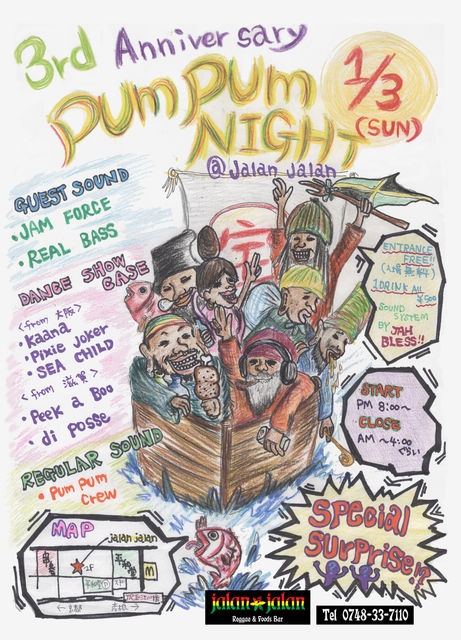 3rd Anniversary
PUM PUM
NIGHT
1/3
(SUN)
@ Jalan Jalan
GUEST SOUND
・JAM FORCE
・REAL BASS
DANCE SHOW
CASE
<from 大阪>
・Kaana
・Pixie Joker
・SEA CHILD
<from 滋賀>
・Peek a Boo
・di posse
REGULAR SOUND
・Pum Pum
Crew
宝
ENTRANCE
FREE!!
(入場無料)
1DRINK ALL
¥500
SOUND
SYSTEM
BY JAH
BLESS!!
START
PM 8:00~
CLOSE
AM ~4:00
ぐらい
SPECIAL
SURPRISE!?
MAP
jalan jalan
2F
M
jalan★jalan
Reggae & Foods Bar
Tel 0748-33-7110